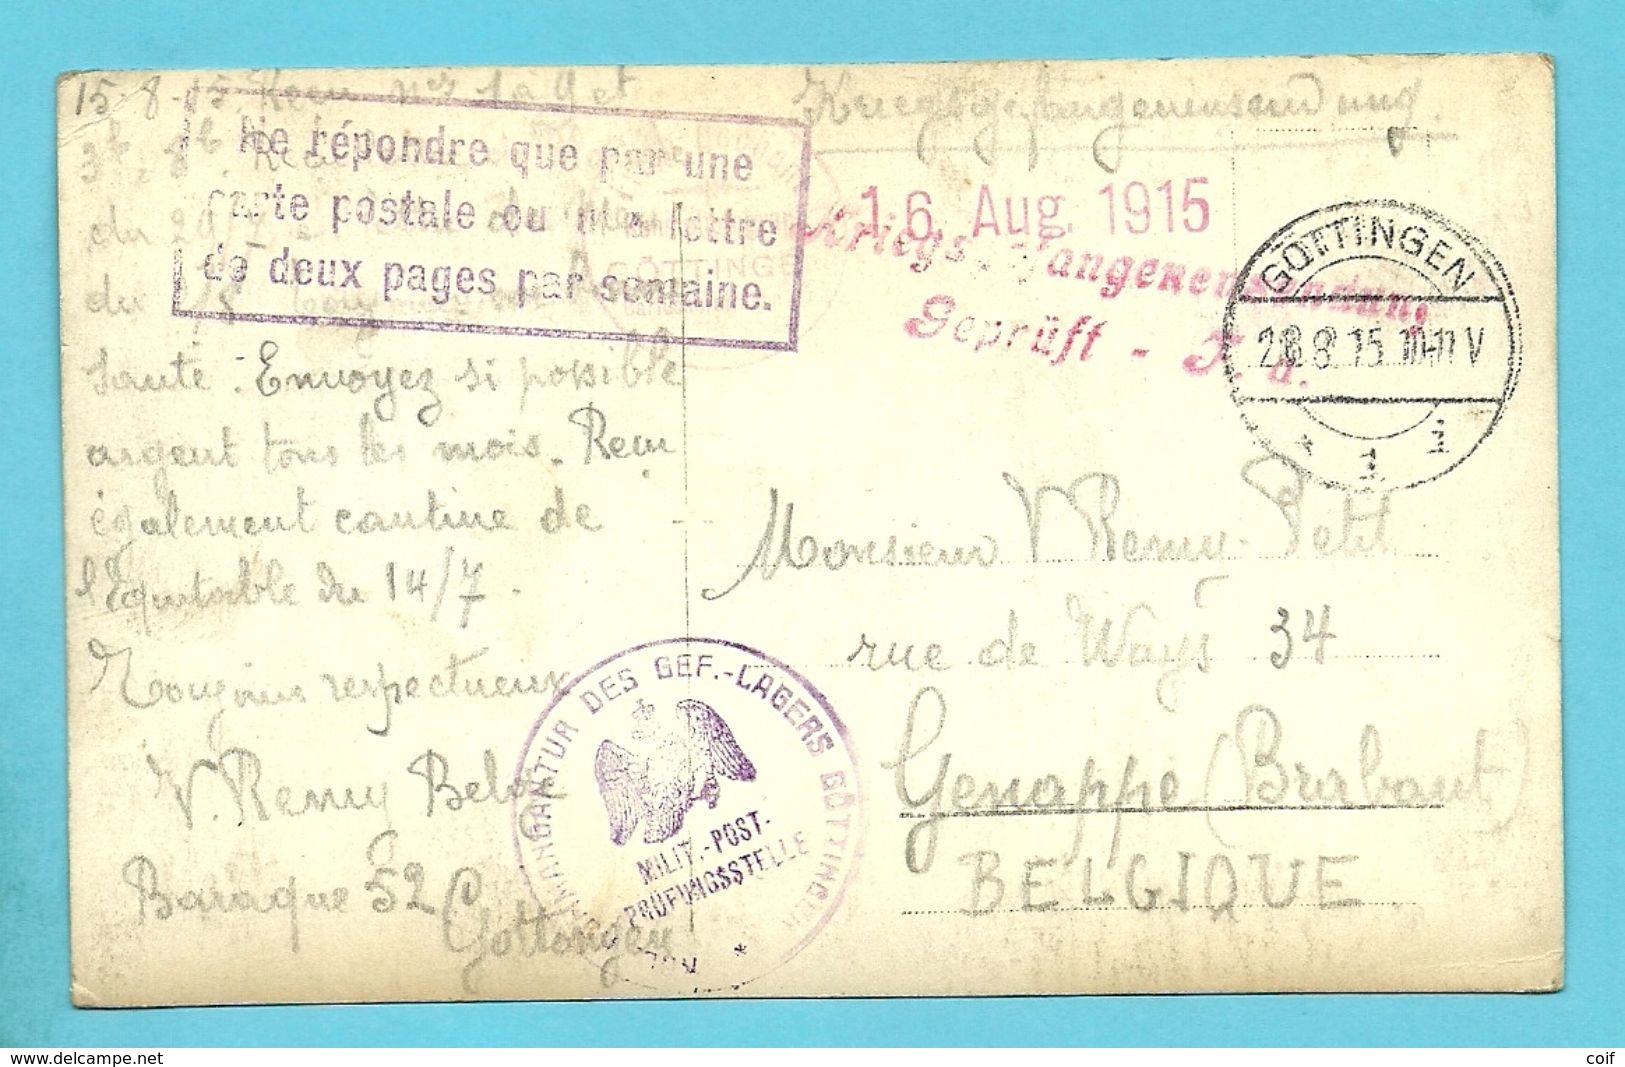 15-8-15. Recu nos 1 à 9 et
Kriegsgefangenensendung.
Ne répondre que par une
carte postale ou une lettre
de deux pages par semaine.
16. Aug. 1915
Kriegsgefangenensendung
Geprüft - F. a.
GÖTTINGEN
8.15. 10-11 V
* 1 1
du
du
Santé. Envoyez si possible
argent tous les mois. Recu
également cantine de
l'Equitable du 14/7.
Toujours respectueux
V. Remy Belge
Baraque 52 C
Gottingen
Monsieur V Remy-Petit
rue de Ways 34
Genappe (Brabant)
BELGIQUE.
KOMMANDANTUR DES GEF.-LAGERS GÖTTINGEN
MILIT.-POST.-
PRÜFUNGSSTELLE
*
www.delcampe.net
coif